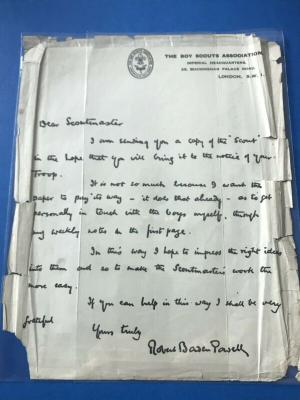 THE BOY SCOUTS ASSOCIATION,
IMPERIAL HEADQUARTERS,
25, BUCKINGHAM PALACE ROAD,
LONDON, S.W.1.
Dear Scoutmaster
I am sending you a copy of the "Scout"
in the hope that you will bring it to the notice of your
Troop.
It is not so much because I want the
paper to pay its way - it does that already - as to get
personally in touch with the boys myself, through
my weekly notes on the first page.
In this way I hope to impress the right ideas
into them and so to make the Scoutmaster's work the
more easy.
If you can help in this way I shall be very
grateful
Yours truly
Robert Baden Powell